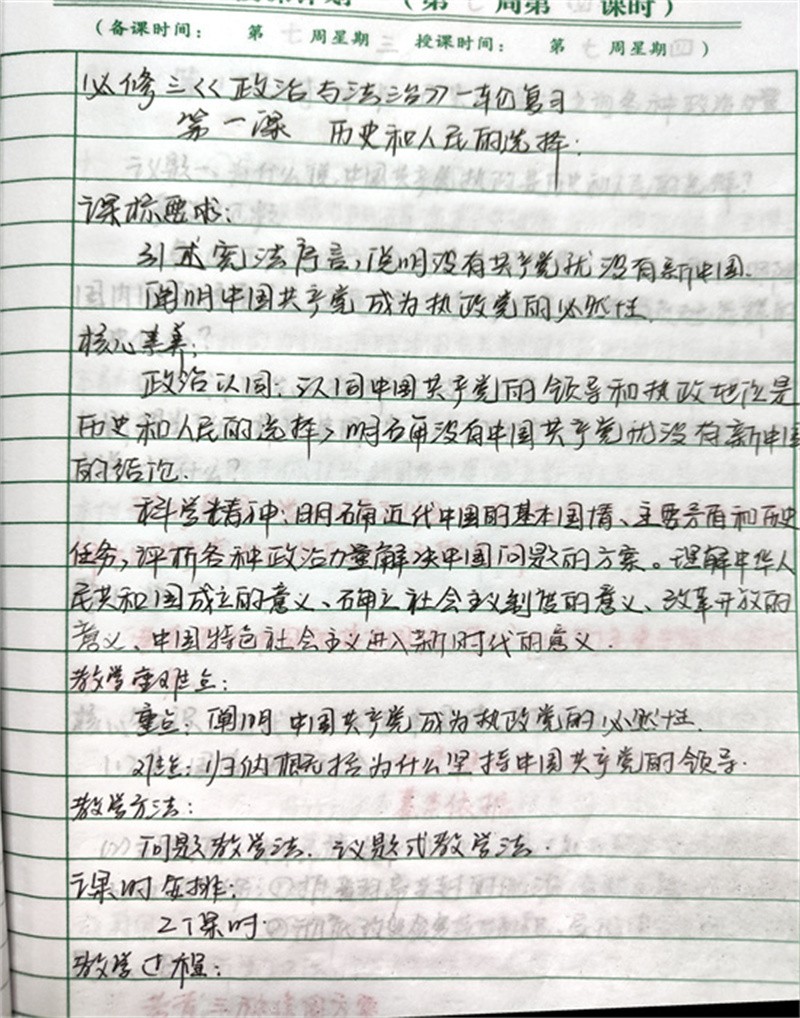 （第七周第四课时）
（备课时间： 第七周星期三 授课时间： 第七周星期四）
必修三《政治与法治》一轮复习
第一课 历史和人民的选择：
课标要求：
引述宪法序言，说明没有共产党就没有新中国.
阐明中国共产党成为执政党的必然性.
核心素养：
政治认同：认同中国共产党的领导和执政地位是
历史和人民的选择，明确没有中国共产党就没有新中国
的结论.
科学精神：明确近代中国的基本国情、主要矛盾和历史
任务，评析各种政治力量解决中国问题的方案。理解中华人
民共和国成立的意义、确立社会主义制度的意义、改革开放的
意义、中国特色社会主义进入新时代的意义.
教学重难点：
重点：阐明中国共产党成为执政党的必然性.
难点：归纳概括为什么坚持中国共产党的领导.
教学方法：
问题教学法. 议题式教学法.
课时安排：
2个课时.
教学过程：